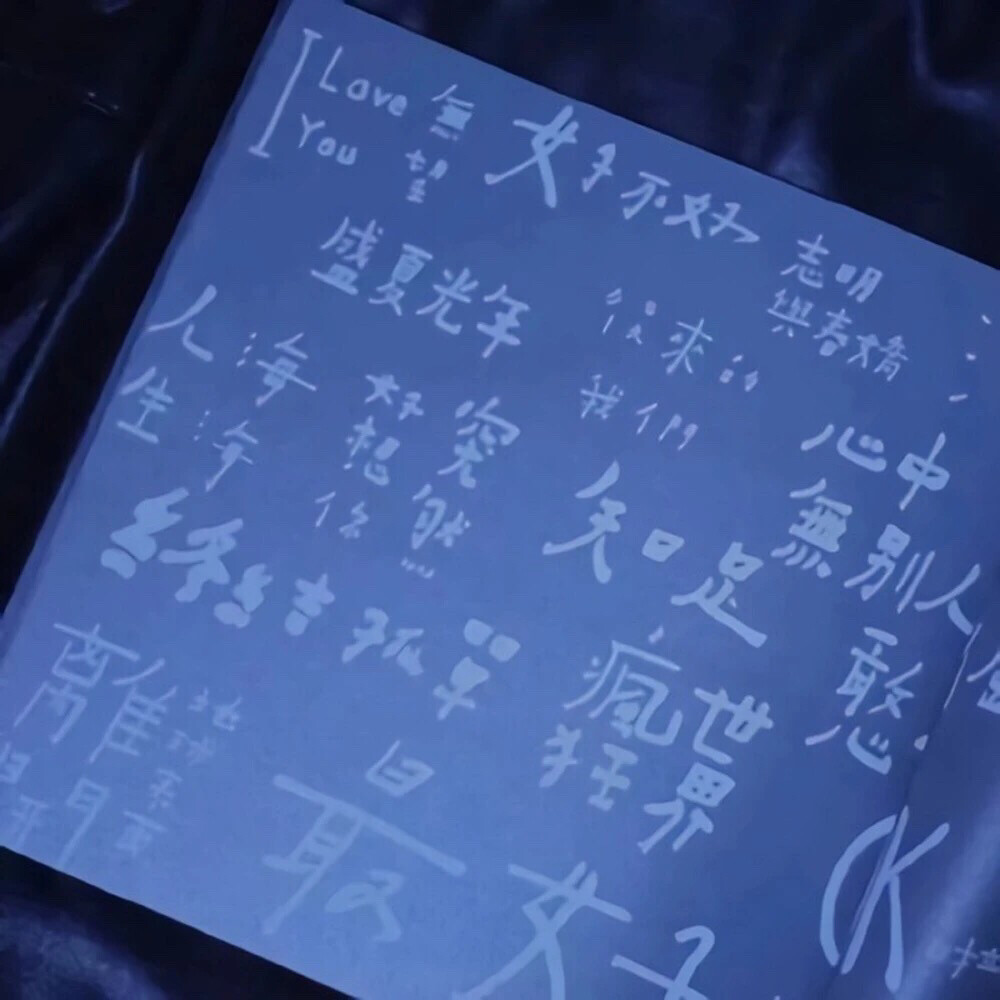 I Love You 無望
女子不好
志明
與春嬌
盛夏光年
後來的
我們
人生海海
好想你
突然
心中
無別人
憨
知足
終結孤單
瘋狂世界
離
地球表面
最
女子